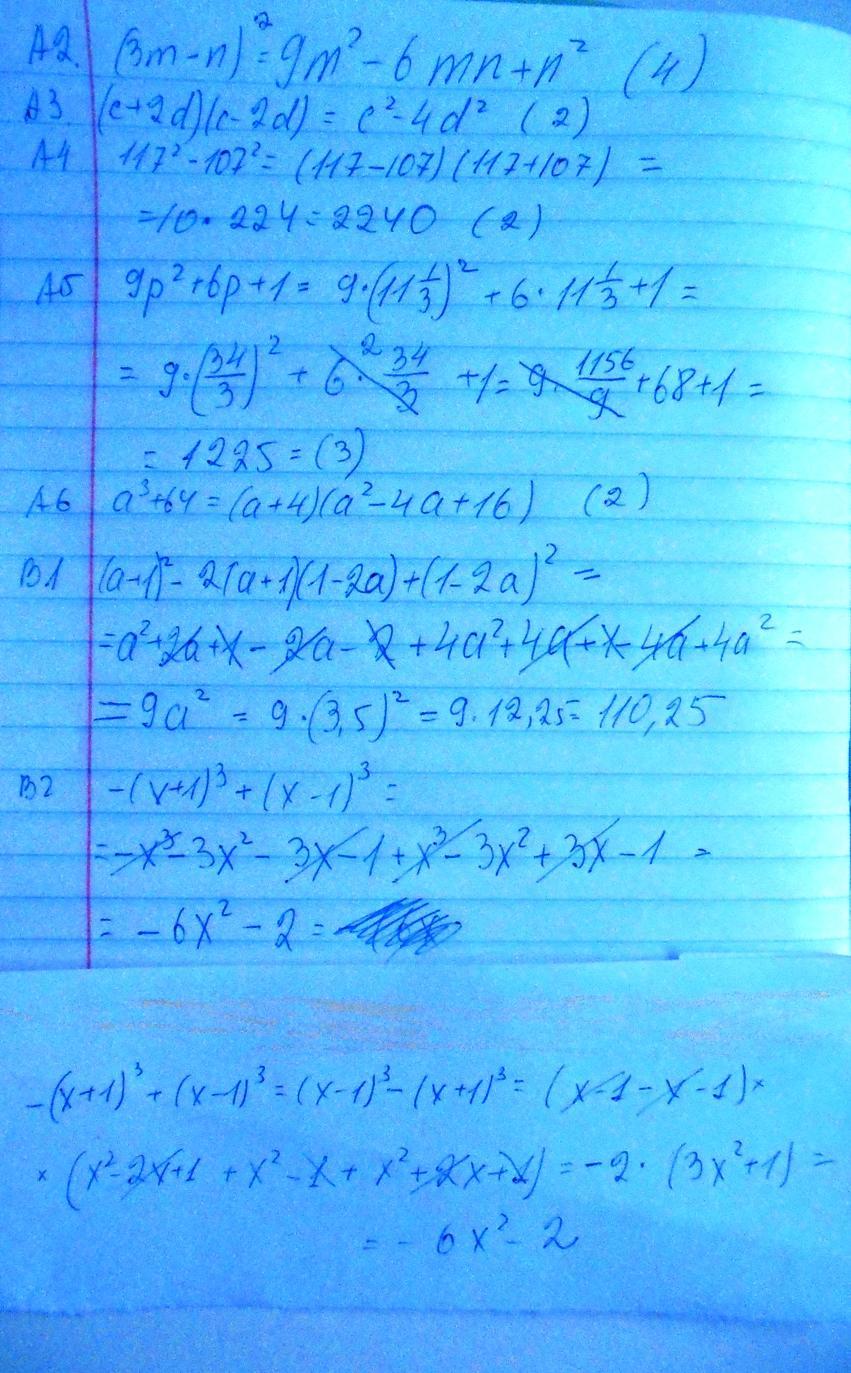 А2. (3m-n)²=9m²-6mn+n² (4)
А3 (c+2d)(c-2d) = c²-4d² (2)
А4 117²-107²= (117-107)(117+107) =
=10·224=2240 (2)
А5 9p²+6p+1= 9·(11 1/3)²+6·11 1/3+1=
= 9·(34/3)²+6·² 34/3 +1= 9· 1156/9 +68+1=
= 1225=(3)
А6 a³+64=(a+4)(a²-4a+16) (2)
В1 (a+1)²-2(a+1)(1-2a)+(1-2a)²=
=a²+2a+1-2a-2+4a²+4a+1-4a+4a²=
=9a² = 9·(3,5)²=9·12,25=110,25
В2 -(x+1)³+(x-1)³=
=-x³-3x²-3x-1+x³-3x²+3x-1 =
= -6x²-2=
-(x+1)³+(x-1)³=(x-1)³-(x+1)³= (x-1-x-1)×
×(x²-2x+1+x²-1+x²+2x+1)=-2·(3x²+1)=
= - 6x²-2